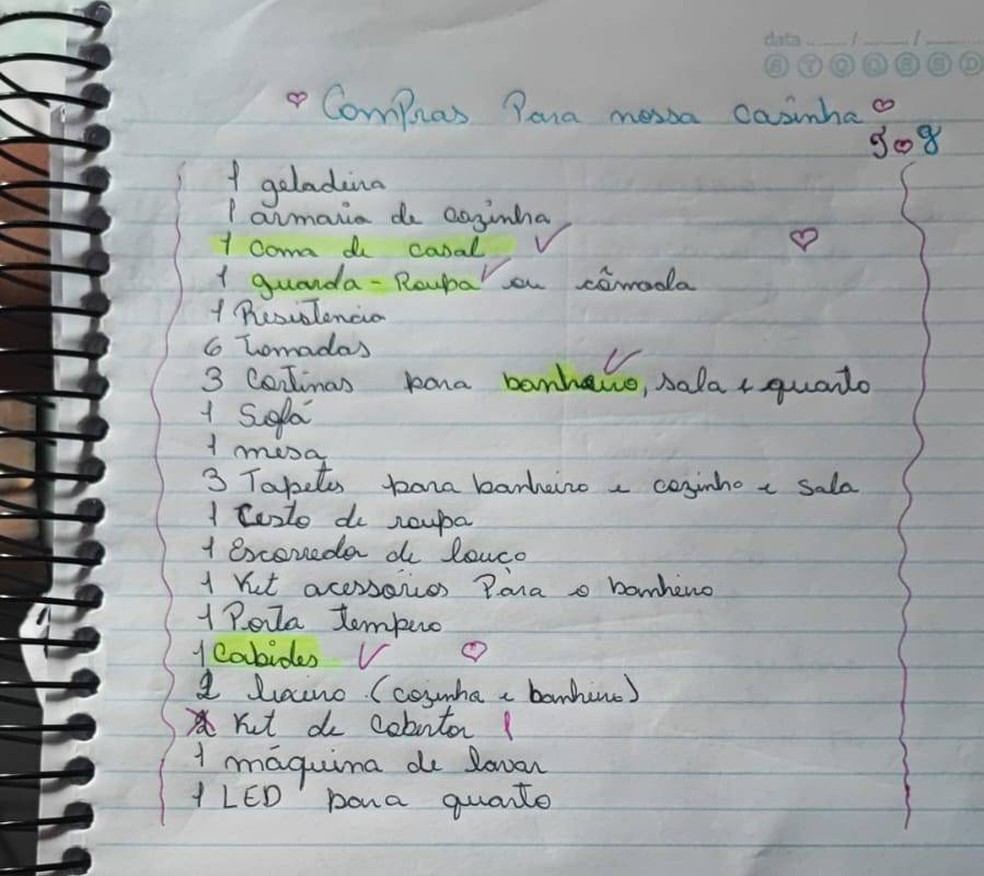 data ___/___/___
D S T Q Q S S D
♡ Compras Para nossa casinha ♡
J♡g
1 geladeira
1 armario de cozinha
1 Cama de casal ✓
1 guarda-Roupa ✓ ou cômada
1 Resistencia
6 Tomadas
3 Cortinas para banheiro ✓, sala e quarto
1 Sofá
1 mesa
3 Tapetes para banheiro e cozinha e Sala
1 Cesto de roupa
1 Escorredor de louça
1 Kit acessórios Para o banheiro
1 Porta Tempero
1 Cabides ✓
2 lixeiro (cozinha e banheiro)
Kit de Cobertor
1 máquina de lavar
1 LED para quarto